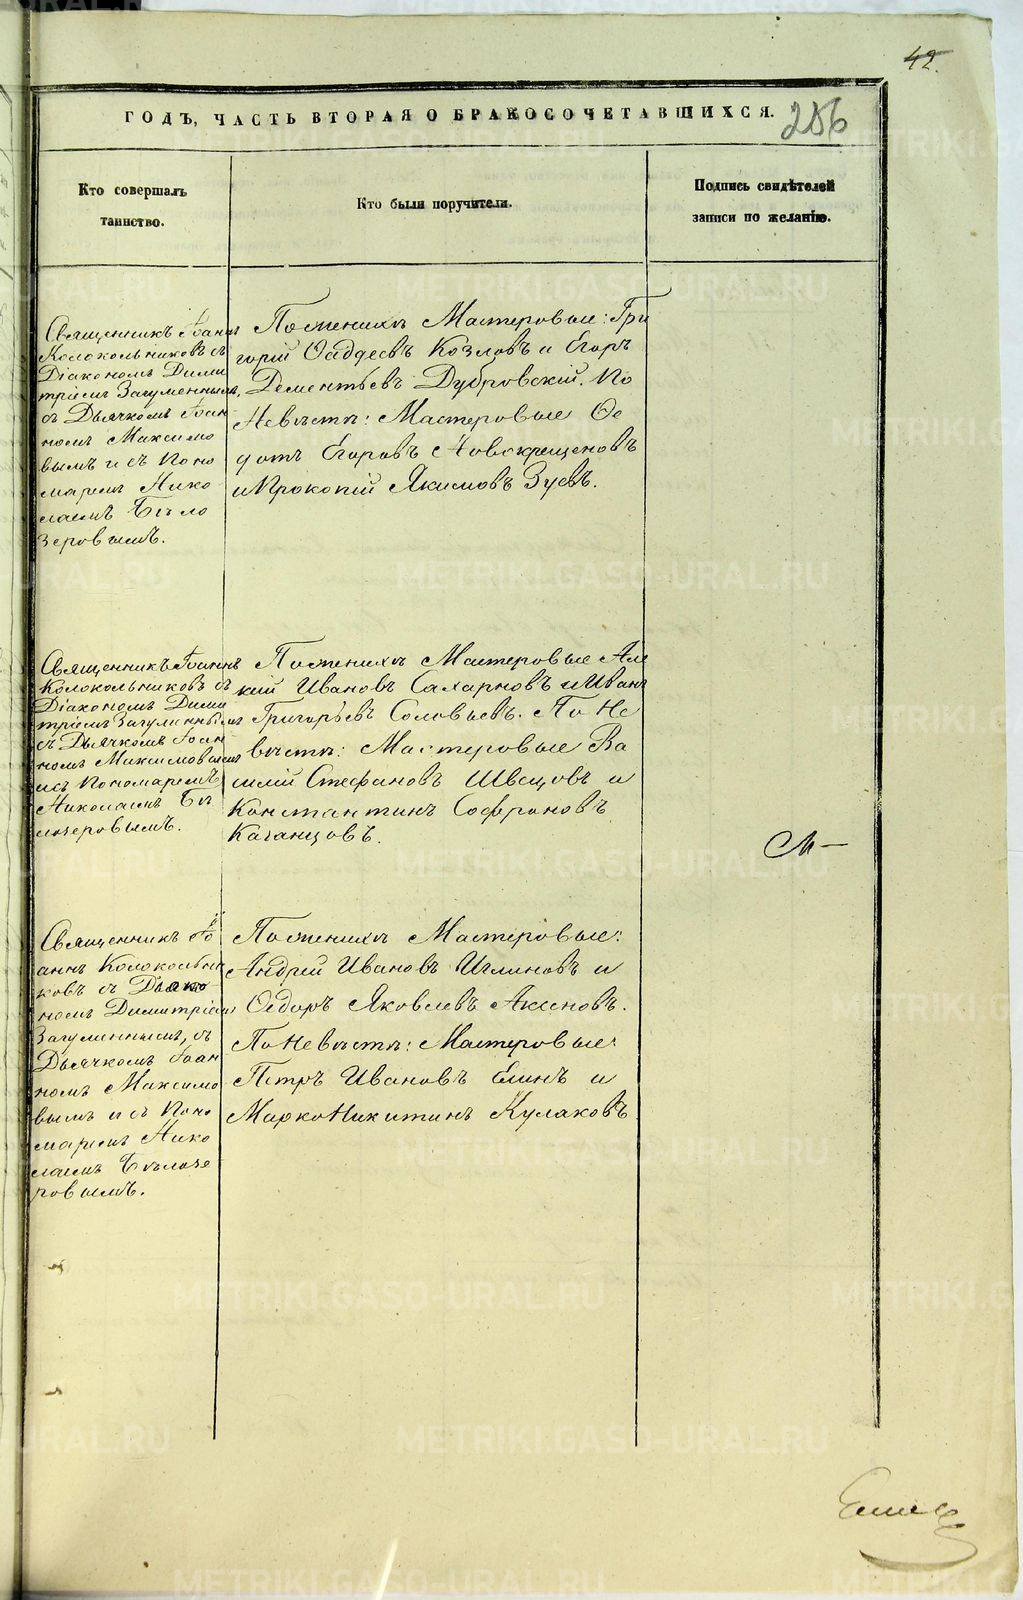 42.
ГОДЪ, ЧАСТЬ ВТОРАЯ О БРАКОСОЧЕТАВШИХСЯ.
286
Кто совершалъ
таинство.
Кто были поручители.
Подпись свидѣтелей
записи по желанію.
Священникъ Іоаннъ
Колокольниковъ съ
Діакономъ Дими
тріемъ Загуменнымъ,
съ Дьячкомъ Іоан
номъ Максимо
вымъ и съ Поно
маремъ Нико
лаемъ Бѣло
зеровымъ.
По женихѣ Мастеровые: Гри
горій Ѳаддеевъ Козловъ и Егоръ
Дементьевъ Дубровскій. По
Невѣстѣ: Мастеровые Ѳе
дотъ Егоровъ Новокрещеновъ
и Прокопій Якимовъ Зуевъ.
Священникъ Іоаннъ
Колокольниковъ съ
Діакономъ Дими
тріемъ Загуменнымъ
съ Дьячкомъ Іоан
номъ Максимовымъ
и съ Пономаремъ
Николаемъ Бѣ
лозеровымъ.
По женихѣ Мастеровые Але
ксій Ивановъ Сахарновъ и Иванъ
Григорьевъ Соловьевъ. По Не
вѣстѣ: Мастеровые Ва
силій Стефановъ Швецовъ и
Константинъ Софроновъ
Каганцовъ.
Священникъ Іо
аннъ Колокольни
ковъ съ Діако
номъ Димитріемъ
Загуменнымъ, съ
Дьячкомъ Іоан
номъ Максимо
вымъ и съ Поно
маремъ Нико
лаемъ Бѣлозе
ровымъ.
По женихѣ Мастеровые:
Андрей Ивановъ и
Ѳедоръ Яковлевъ Аксеновъ.
По Невѣстѣ: Мастеровые:
Петръ Ивановъ Елинъ и
Марко Никитинъ Кулаковъ
METRIKI.GASO-URAL.RU